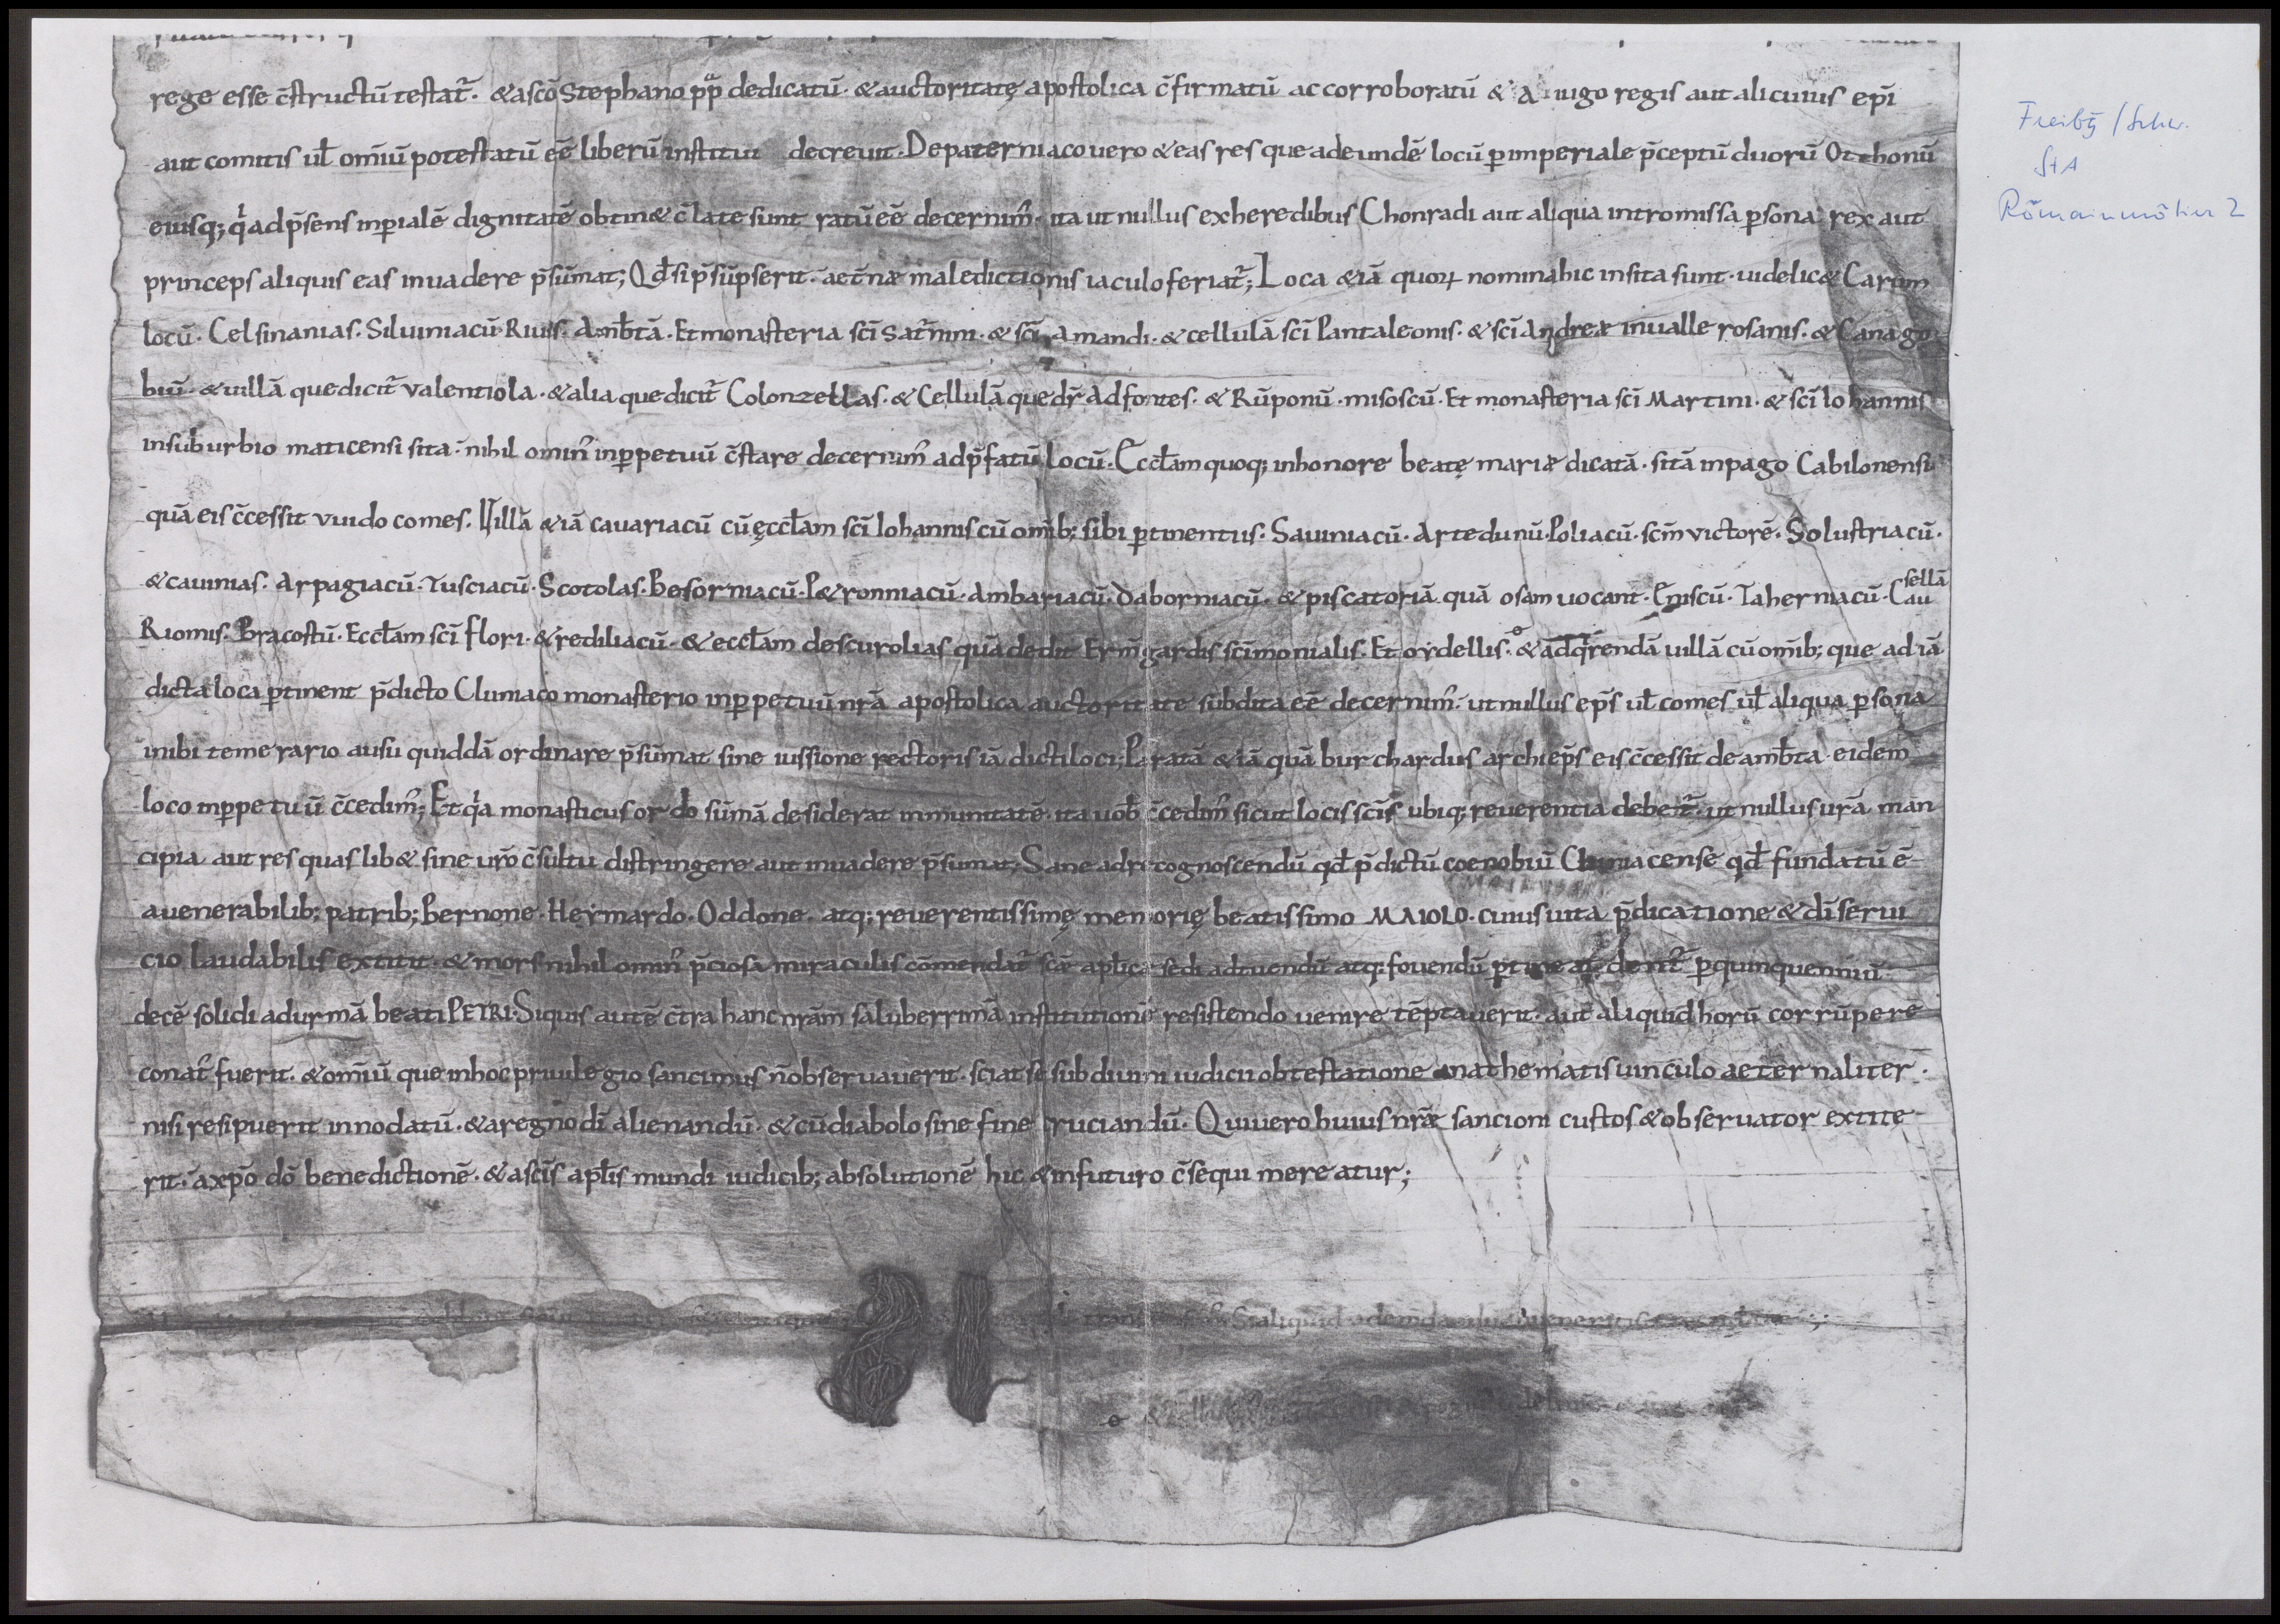 rege esse c̄structū testat᷑. & a sc̄o Stephano pp̄ dedicatū. & auctoritatę apostolica c̄firmatū ac corroboratū & a iugo regis aut alicuius epi̅
aut comitis ul̄ om̄iū potestatū eē liberū institui decreuit. De paterniaco uero & eas res que ad eundē locū p̱ imperiale p̄ceptū duorū Otthonū
eiusq; q̇ ad p̄sens inp̱ialē dignitatē obtin& c̄late sunt ratū eē decernim᷒. ita ut nullus ex heredibus Chonradi aut aliqua intromissa p̱sona rex aut
princeps aliquis eas inuadere p̄sūmat; Qd̄ si p̄sūpserit. aet̄næ maledictionis iaculo feriat᷑; Loca &iā quoꝝ nomina hic insita sunt. uidelic& Carum
locū. Celsinanias. Siluiniacū. Riuis. Amb̄tā. Et monasteria sc̄i Sat᷑nini. & sc̄i Amandi. & cellulā sc̄i Pantaleonis. & sc̄i Andreæ in ualle rosanis. & Canago
biū. & uillā que dicit᷑ Valentiola. & alia que dicit᷑ Colonzellas. & Cellulā que dr̄ Ad fontes. & Rūponū. misoscū. Et monasteria sc̄i Martini. & sc̄i Iohannis
in suburbio maticensi sita. nihil omin᷒ inp̱petuū c̄stare decernim᷒ ad p̄fatū locū. Eccl̄am quoq; in honore beatę mariæ dicatā. sitā in pago Cabilonensi
quā eis c̄cessit vuido comes. Uillā &iā cauariacū cū ęccl̄am sc̄i Iohannis cū om̄ib; sibi p̱tinentiis. Sauiniacū. Artedunū. Poliacū. sc̄m victorē. Solustriacū.
& cauinias. Arpagiacū. Tusciacū. Scotolas. Besorniacū. P&ronniacū. Ambariacū. Daborniacū. & piscatoriā quā osam uocant. Eniscū. Taherniacū. Cau
sellā
Riomis. Bracostū. Eccl̄am sc̄i flori. & rediliacū. & eccl̄am de scurolias quā dedit Erm̄gardis sc̄imonialis. Et ordellis. & ad q̄rendā uillā cū om̄ib; que ad iā
dicta loca p̱tinent p̄dicto Cluniaco monasterio inp̱petuū nr̄a apostolica auctoritate subdita eē decernim᷒. ut nullus ep̄s ul̄ comes ul̄ aliqua p̱sona
inibi temerario ausu quiddā ordinare p̄sūmat sine iussione rectoris iā dicti loci; Paratā &iā quā burchardus archiep̄s eis c̄cessit de amb̄ta eidem
loco inp̱petuū c̄cedim᷒; Et q̇a monasticus ordo sūmā desiderat inmunitatē. ita uob̄ c̄cedim᷒ sicut locis sc̄is ubiq; reuerentia debet᷑. ut nullus ur̄a man
cipia aut res quaslib& sine ur̄o c̄sultu distringere aut inuadere p̄sumat; Sane ad cognoscendū qd̄ p̄dictū coenobiū Cluniacense qd̄ fundatū ē
a uenerabilib; patrib; Bernone. Heymardo. Oddone. atq; reuerentissimę memorię beatissimo MAIOLO. cuius uita p̄dicatione & di̅ serui
cio laudabilis extitit. & mors nihil omin᷒ p̄ciosa miraculis cōmendat᷑ sc̄æ apl̄icæ sedi ad tuendū atq; fouendū p̱tineat. dent᷑ p̱ quinquenniū
decē solidi ad urmā beati PETRI. Siquis autē c̄tra hanc nr̄ām saluberrimā institutionē resistendo uenire tēptauerit. aut aliquid horū corrūpere
conat᷒ fuerit. & om̄iū que in hoc priuilegio sancimus n̄ obseruauerit. sciat se sub diuini iudicii obtestatione anathematis uinculo aeternaliter.
nisi resipuerit innodatū. & a regno di̅ alienandū. & cū diabolo sine fine cruciandū. Qui uero huius nr̄æ sancioni custos & obseruator extite
rit. a xp̄o dn̄o benedictionē. & a sc̄is apl̄is mundi iudicib; absolutionē hic & in futuro c̄sequi mereatur;
Si aliquid
Freibg / Schw.
StA
Romainmôtier 2